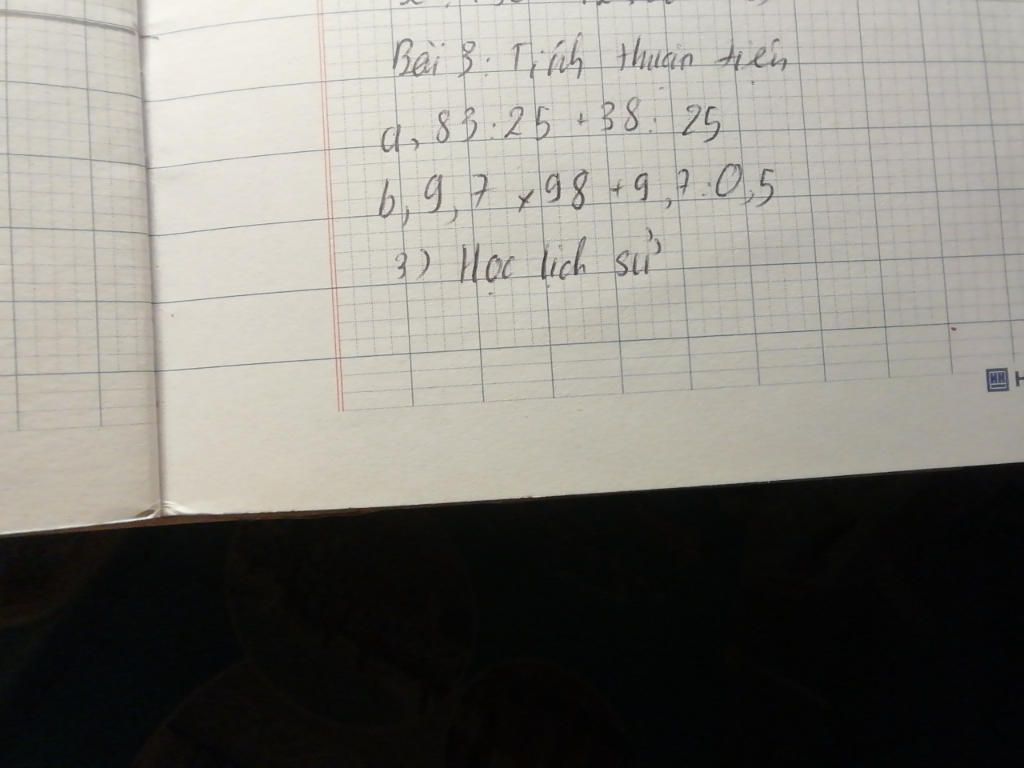 Bài 3: Tính thuận tiện
a, 83 : 25 + 38 : 25
b, 9,7 x 98 + 9,7 : 0,5
3) Học lịch sử
H